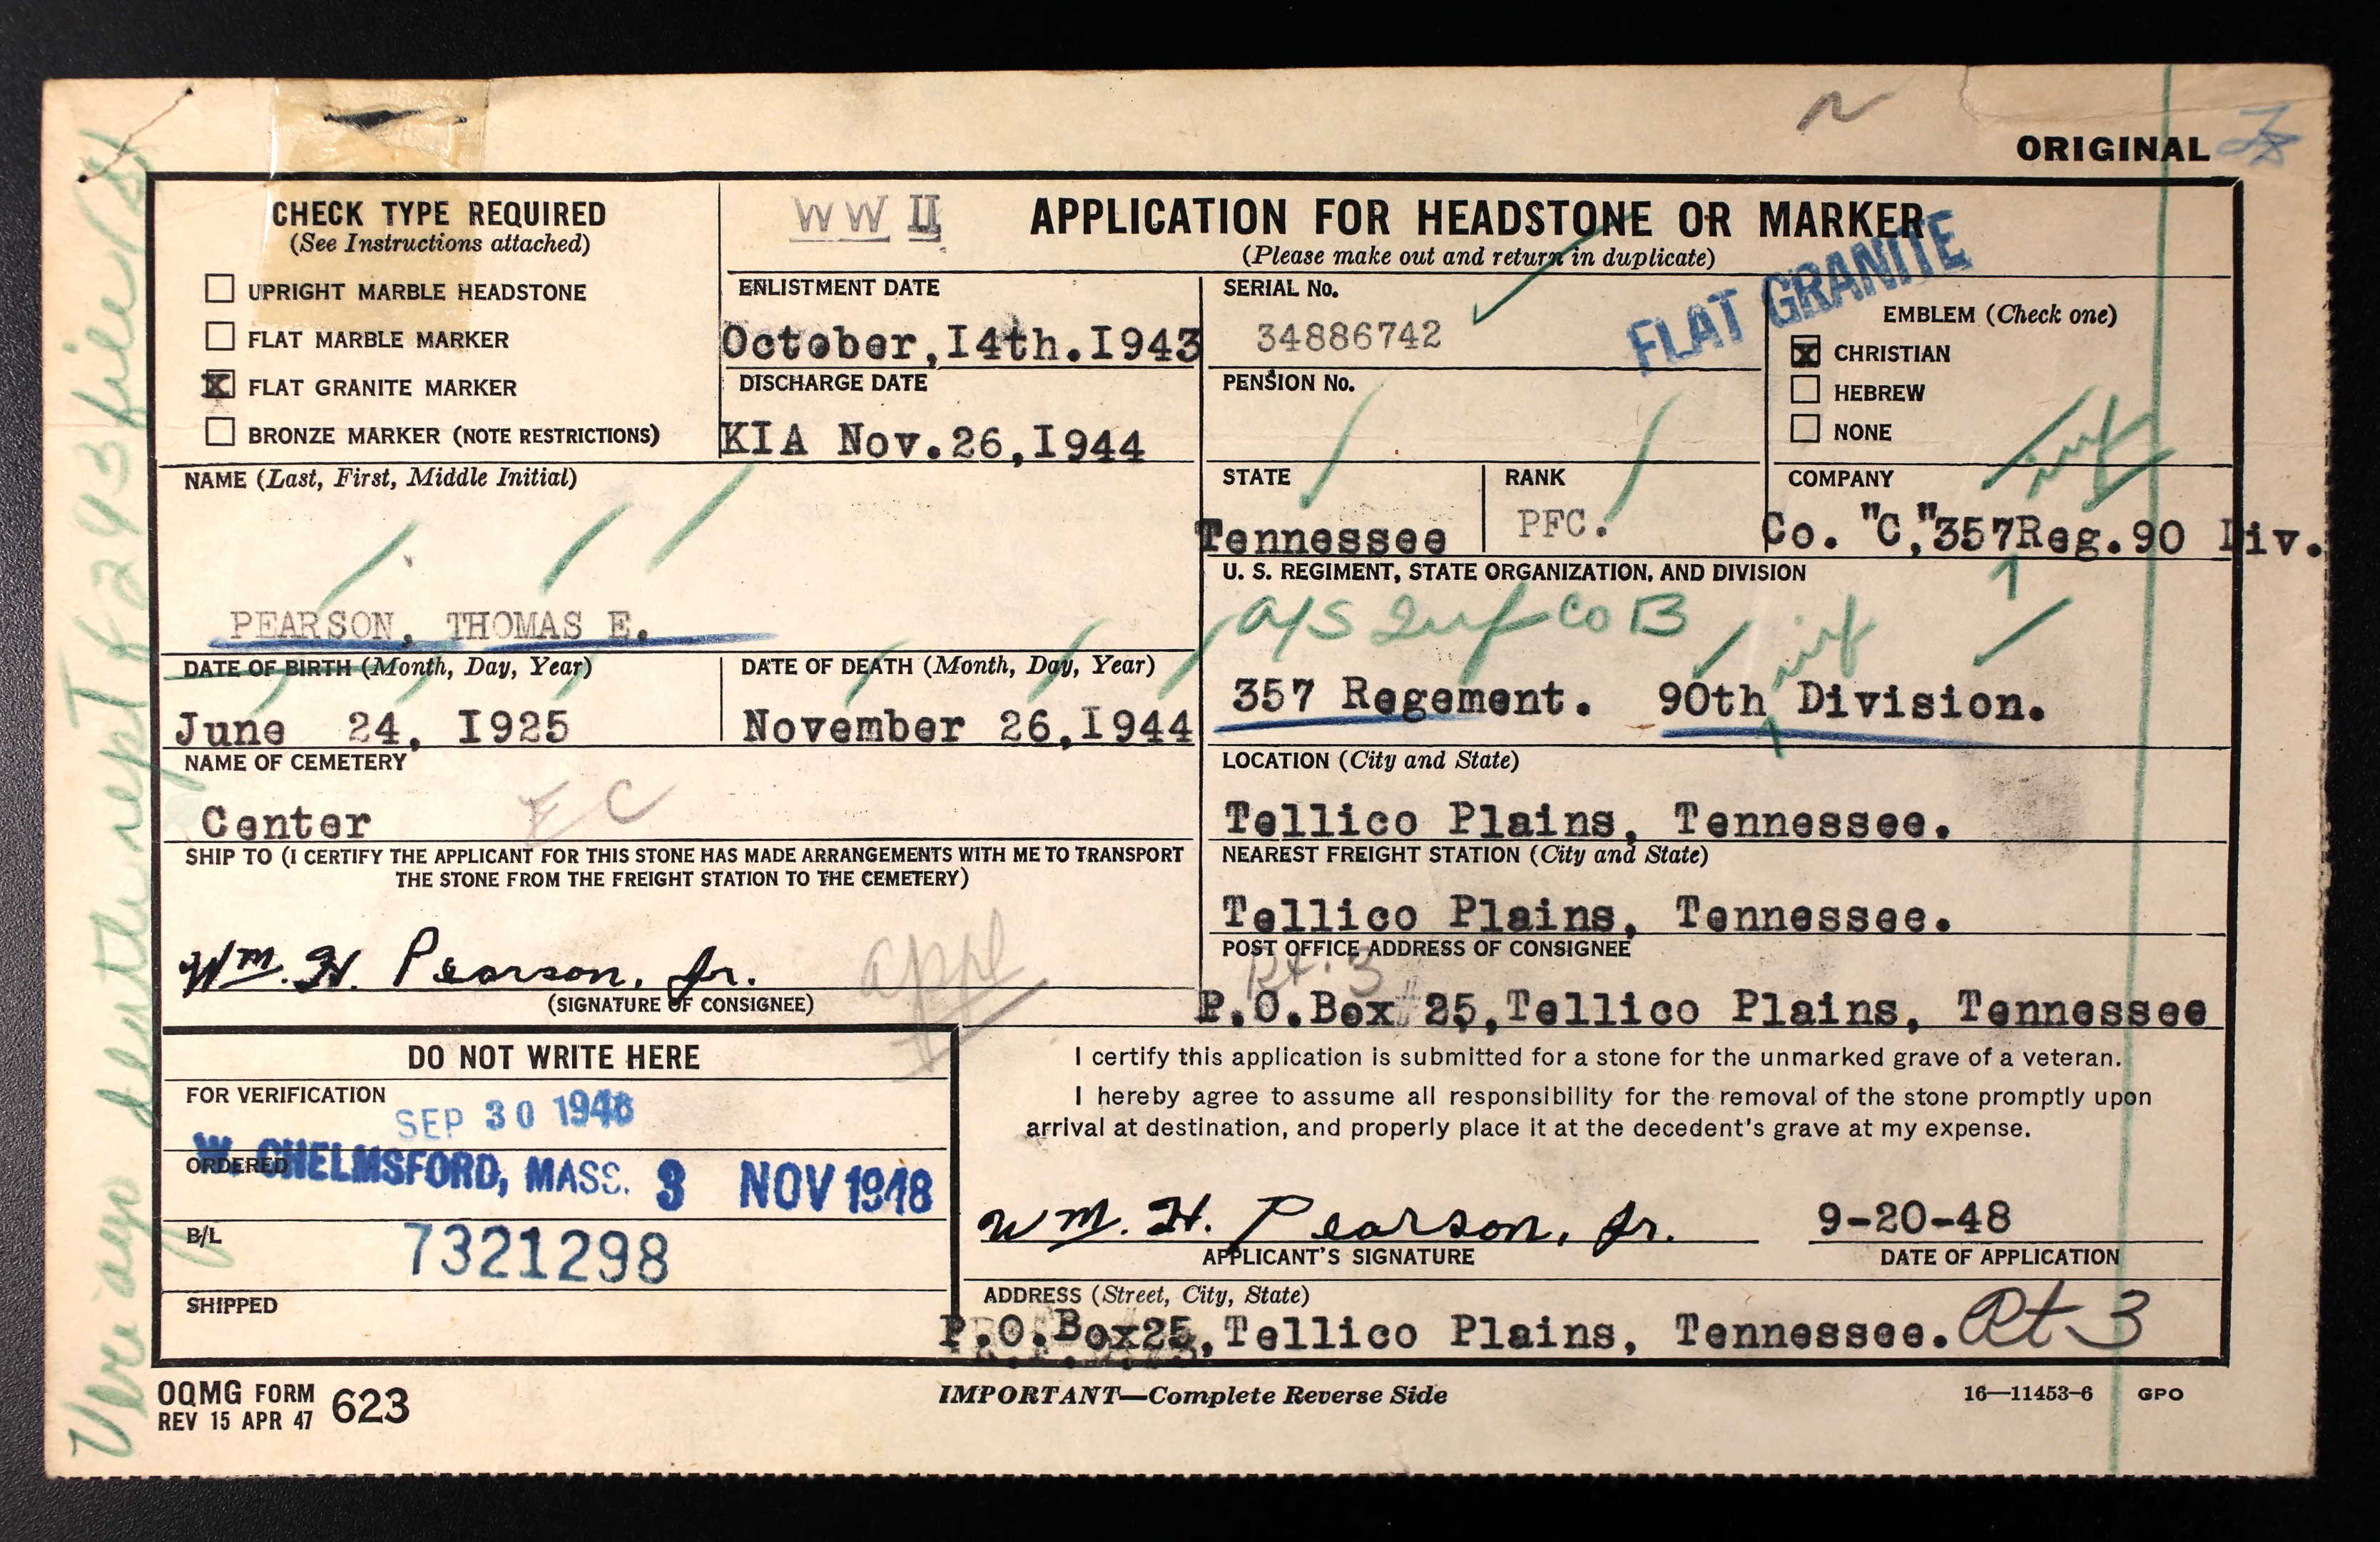 ORIGINAL
CHECK TYPE REQUIRED
(See Instructions attached)
UPRIGHT MARBLE HEADSTONE
FLAT MARBLE MARKER
X FLAT GRANITE MARKER
BRONZE MARKER (NOTE RESTRICTIONS)
WW II
APPLICATION FOR HEADSTONE OR MARKER
(Please make out and return in duplicate)
ENLISTMENT DATE
October,I4th.I943
DISCHARGE DATE
KIA Nov.26,I944
SERIAL No.
34886742
PENSION No.
FLAT GRANITE
EMBLEM (Check one)
X CHRISTIAN
HEBREW
NONE
NAME (Last, First, Middle Initial)
PEARSON, THOMAS E.
STATE
Tennessee
RANK
PFC.
COMPANY
inf
Co. "C,"357Reg.90 Div.
U. S. REGIMENT, STATE ORGANIZATION, AND DIVISION
A/S Inf Co B
inf
357 Regement. 90th Division.
DATE OF BIRTH (Month, Day, Year)
June 24, I925
DATE OF DEATH (Month, Day, Year)
November 26,I944
NAME OF CEMETERY
Center
EC
LOCATION (City and State)
Tellico Plains, Tennessee.
SHIP TO (I CERTIFY THE APPLICANT FOR THIS STONE HAS MADE ARRANGEMENTS WITH ME TO TRANSPORT
THE STONE FROM THE FREIGHT STATION TO THE CEMETERY)
NEAREST FREIGHT STATION (City and State)
Tellico Plains, Tennessee.
Wm. H. Pearson, Jr.
appl
(SIGNATURE OF CONSIGNEE)
POST OFFICE ADDRESS OF CONSIGNEE
Rt. 3
P.O.Box 25,Tellico Plains, Tennessee
DO NOT WRITE HERE
FOR VERIFICATION
SEP 30 1948
ORDERED
W. CHELMSFORD, MASS. 3 NOV 1948
B/L
7321298
SHIPPED
I certify this application is submitted for a stone for the unmarked grave of a veteran.
I hereby agree to assume all responsibility for the removal of the stone promptly upon
arrival at destination, and properly place it at the decedent's grave at my expense.
Wm. H. Pearson, Jr.
9-20-48
APPLICANT'S SIGNATURE
DATE OF APPLICATION
ADDRESS (Street, City, State)
P.O.Box25,Tellico Plains, Tennessee. Rt 3
OQMG FORM 623
REV 15 APR 47
IMPORTANT—Complete Reverse Side
16—11453-6 GPO